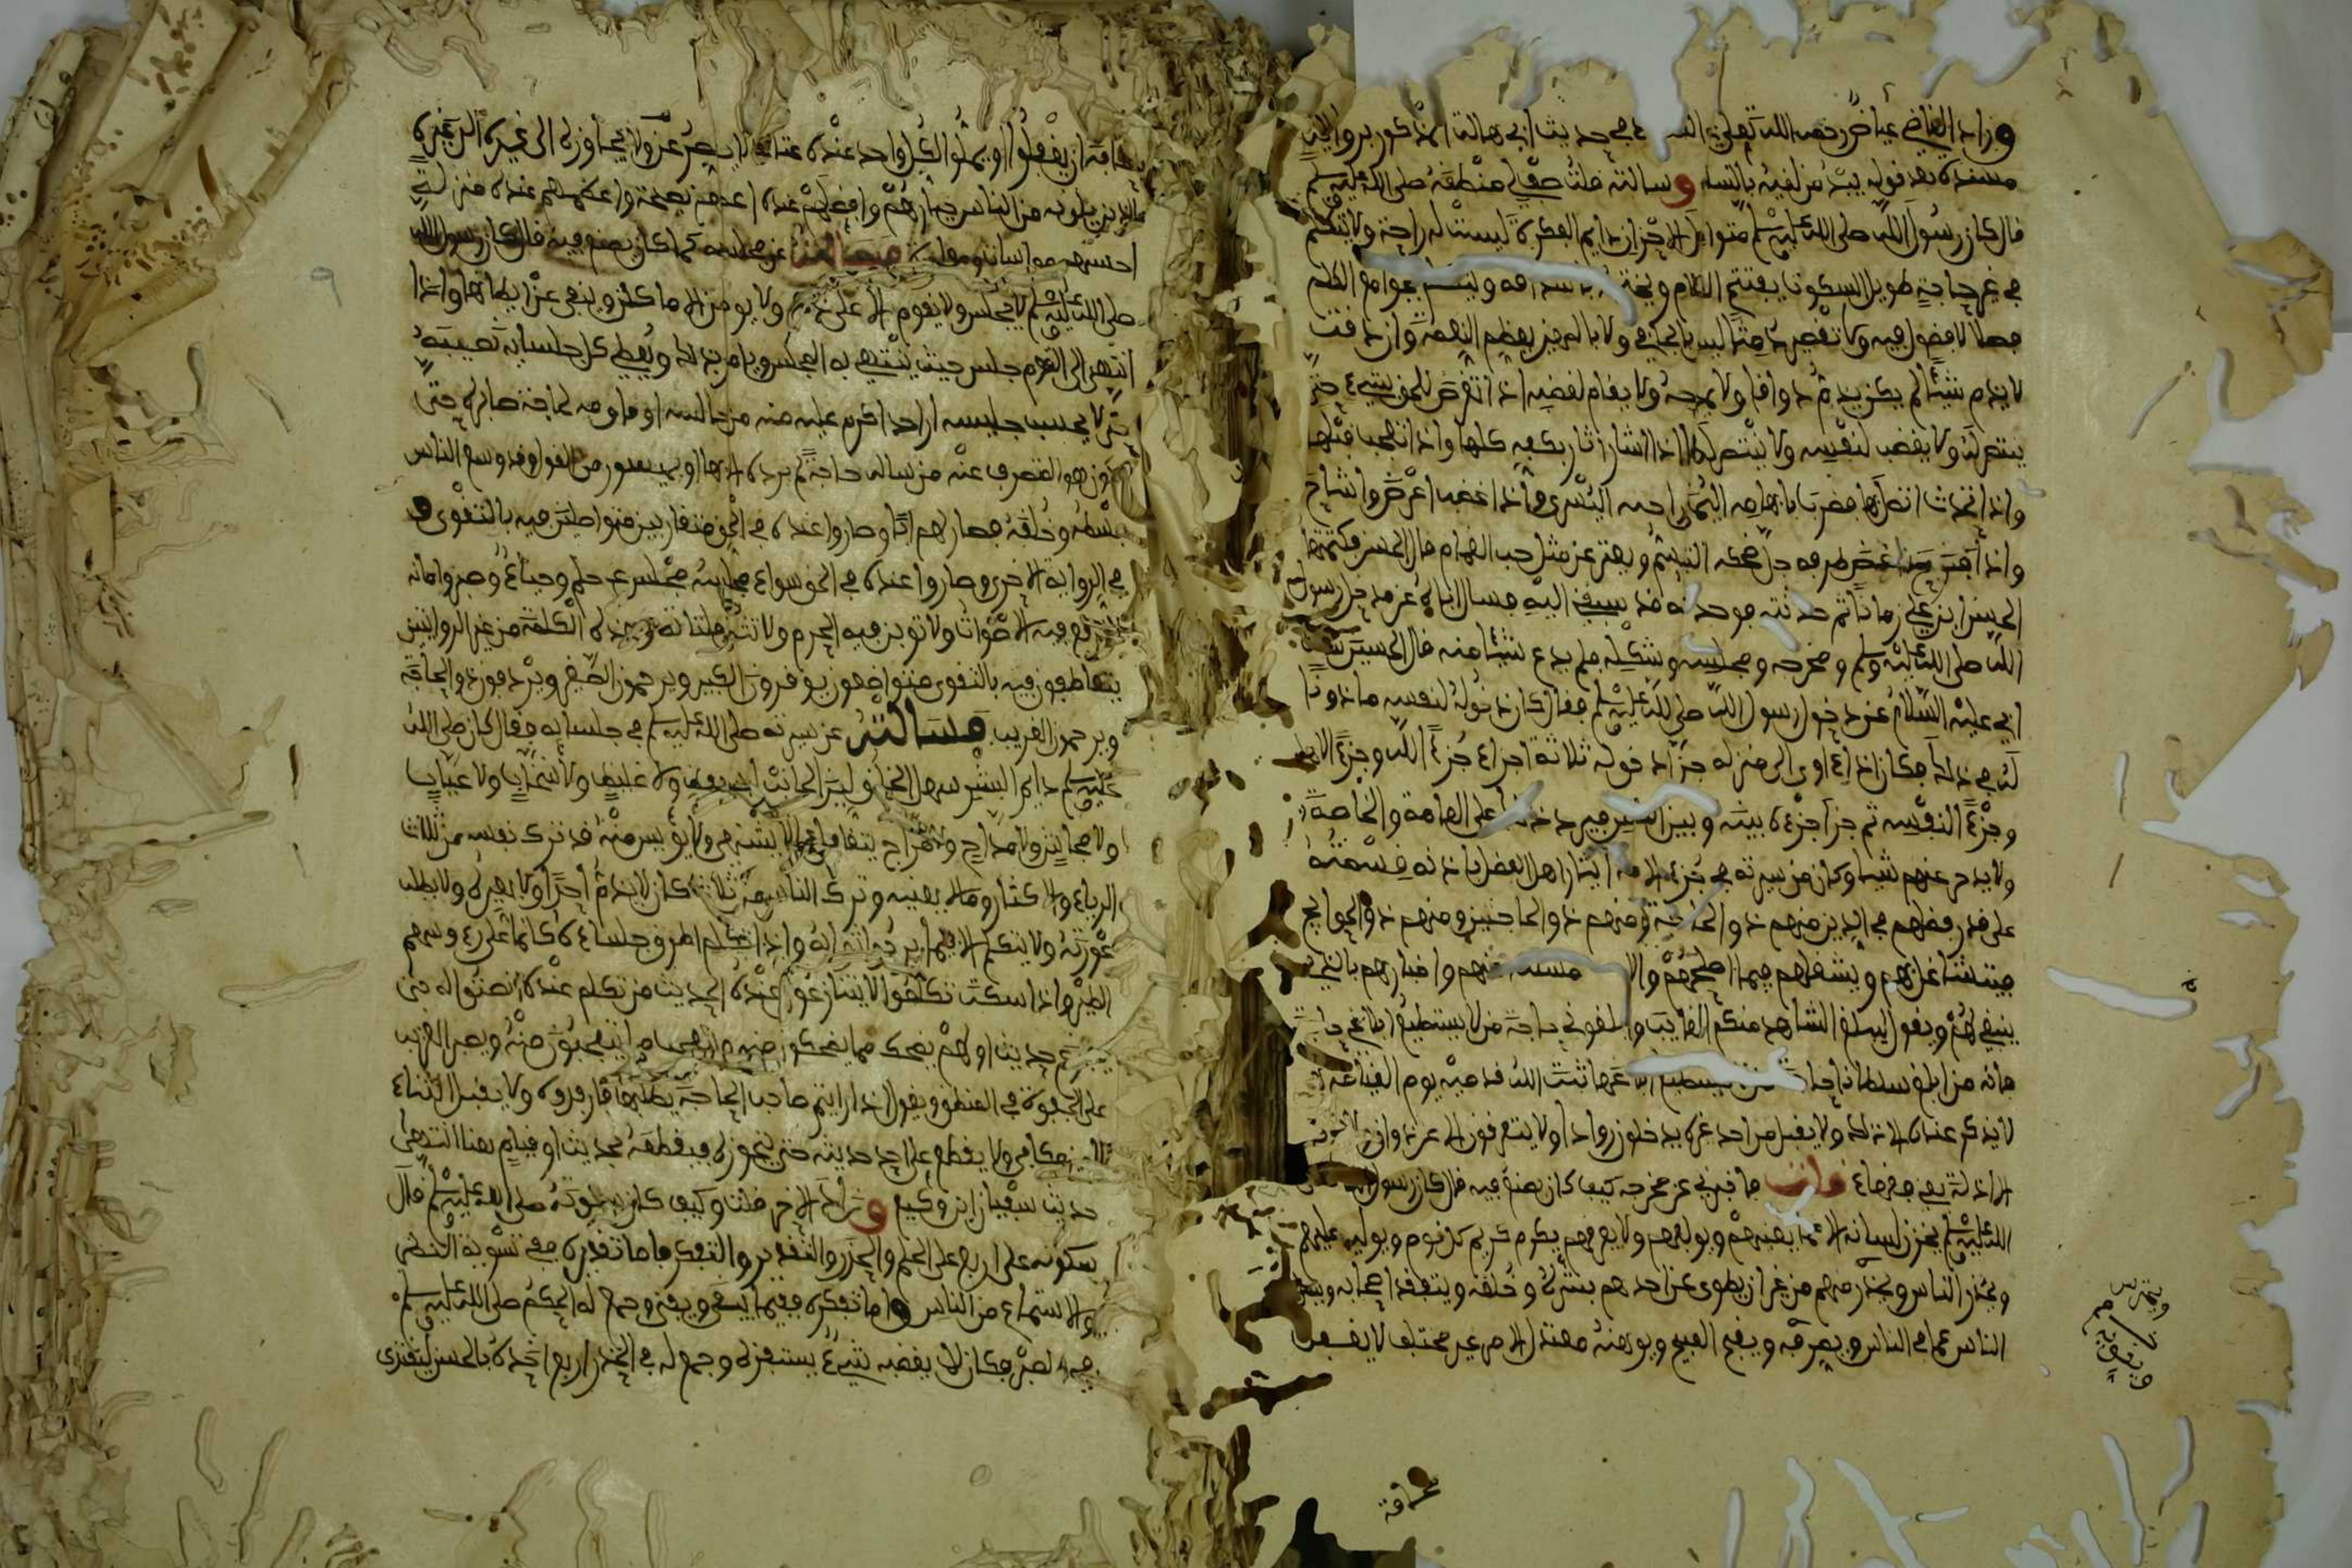 وزاد القاضي عياض رحمه الله تعلى في حديث ابي هالة المذكور بروايتي
مسنده بعد قوله يبدأ من لقيه بالسلام وسالته قلت صف لي منطقه صلى الله عليه وسلم
قال كان رسول الله صلى الله عليه وسلم متواصل الاحزان دايم الفكرة ليست له راحة ولا يتكلم
في غير حاجة طويل السكوت يفتتح الكلام ويختمه باشداقه ويتكلم بجوامع الكلم
فصلا لا فضول فيه ولا تقصير دمثا ليس بالجافي ولا بالمهين يعظم النعمة وان دقت
لا يذم شيئا لم يكن يذم ذواقا ولا يمدحه ولا يقام لغضبه اذا تعرض للحق بشيء حتى
ينتصر له ولا يغضب لنفسه ولا ينتصر لها اذا اشار اشار بكفه كلها واذا تعجب قلبها
واذا تحدث اتصل بها فضرب بابهامه اليمنى راحته اليسرى واذا غضب اعرض واشاح
واذا فرح غض طرفه جل ضحكه التبسم ويفتر عن مثل حب الغمام قال الحسن فكتمتها
الحسين ابن علي زمانا ثم حدثته فوجدته قد سبقني اليه فسال اباه عن مدخل رسول
الله صلى الله عليه وسلم ومخرجه ومجلسه وشكله فلم يدع شيئا منه قال الحسين سالت
ابي عليه السلام عن دخول رسول الله صلى الله عليه وسلم فقال كان دخوله لنفسه ماذونا
له في ذلك فكان اذا اوى الى منزله جزا دخوله ثلاثة اجزاء جزءا لله وجزءا لاهله
وجزءا لنفسه ثم جزا جزءه بينه وبين الناس فيرد ذلك على العامة والخاصة
ولا يدخر عنهم شيئا وكان من سيرته في جزء الامة ايثار اهل الفضل باذنه وقسمته
على قدر فضلهم في الدين منهم ذو الحاجة ومنهم ذو الحاجتين ومنهم ذو الحوايج
فيتشاغل بهم ويشغلهم فيما اصلحهم والامة مسئلته عنهم واخبارهم بالذي
ينبغي لهم ويقول ليبلغ الشاهد منكم الغايب وابلغوني حاجة من لا يستطيع ابلاغي حاجته
فانه من ابلغ سلطانا حاجة من لا يستطيع ابلاغها ثبت الله قدميه يوم القيامة
لا يذكر عنده الا ذلك ولا يقبل من احد غيره يدخلون روادا ولا يتفرقون الا عن ذواق ويخرجون
ادلة يعني فقهاء قلت فاخبرني عن مخرجه كيف كان يصنع فيه قال كان رسول الله صلى
الله عليه وسلم يخزن لسانه الا مما يعنيهم ويولفهم ولا يفرقهم يكرم كريم كل قوم ويوليه عليهم
ويحذر الناس ويحترس منهم من غير ان يطوي عن احدهم بشره وخلقه ويتفقد اصحابه ويسل
الناس عما في الناس ويصرفه ويقبح القبيح ويوهنه معتدل الامر غير مختلف لا يغفل
ويحترس
ويقويه
مخافة
مخافة ان يغفلوا او يملوا لكل واحد عنده عتاد لا يقصر عن ولا يجاوزه الى غيره
الذين يلونه من الناس خيارهم وافضلهم عنده اعمهم نصيحة واعظمهم عنده منزلة
احسنهم مواساة وموازرة فسالته عن مجلسه كما كان يصنع فيه قال كان رسول الله
صلى الله عليه وسلم لا يجلس ولا يقوم الا على ذكر ولا يوطن الاماكن وينهى عن ايطانها واذا
انتهى الى القوم جلس حيث ينتهي به المجلس ويامر بذلك ويعطي كل جلسايه نصيبه
حتى لا يحسب جليسه ان احدا اكرم عليه منه من جالسه او قاومه لحاجة صابره حتى
يكون هو المنصرف عنه من ساله حاجة لم يرده الا بها او بميسور من القول قد وسع الناس
بسطه وخلقه فصار لهم ابا وصاروا عنده في الحق متقاربين متواصلين فيه بالتقوى و
في الرواية الاخرى صاروا عنده في الحق سواء مجلسه مجلس حلم وحياء وصبر وامانة
لا ترفع فيه الاصوات ولا توبن فيه الحرم ولا تنثى فلتاته وهذه الكلمة من غير الروايتين
يتعاطفون فيه بالتقوى متواضعون يوقرون الكبير ويرحمون الصغير ويرفدون ذو الحاجة
ويرحمون الغريب فسالته عن سيرته صلى الله عليه وسلم في جلسايه فقال كان صلى الله
عليه وسلم دايم البشر سهل الخلق لين الجانب ليس بفظ ولا غليظ ولا سخاب ولا عياب
ولا فحاش ولا مداح ولا مزاح يتغافل عما لا يشتهي ولا يويس منه قد ترك نفسه من ثلاث
الرياء والاكثار وما لا يعنيه وترك الناس من ثلاث كان لا يذم احدا ولا يعيره ولا يطلب
عورته ولا يتكلم الا فيما يرجو ثوابه واذا تكلم اطرق جلساءه كانما على رءوسهم
الطير واذا سكت تكلموا لا يتنازعون عنده الحديث من تكلم عنده انصتوا له حتى
يفرغ حديث اولهم يضحك مما يضحكون منه ويتعجب مما يتعجبون منه ويصبر للغريب
على الجفوة في المنطق ويقول اذا رايتم صاحب الحاجة يطلبها فارفدوه ولا يقبل الثناء
الا من مكافي ولا يقطع على احد حديثه حتى يتجوزه فيقطعه بحديث او قيام هنا انتهى
حديث سفيان ابن وكيع وزاد الاخر قلت وكيف كان سكوته صلى الله عليه وسلم قال
سكوته على اربع على الحلم والحذر والتقدير والتفكر فاما تقديره ففي تسوية النظر
والاستماع من الناس واما تفكره ففيما يبقى ويفنى وجمع له الحكم صلى الله عليه وسلم
في الصبر فكان لا يغضبه شيء يستفزه وجمع له في الحذر اربع اخذه بالحسن ليقتدى